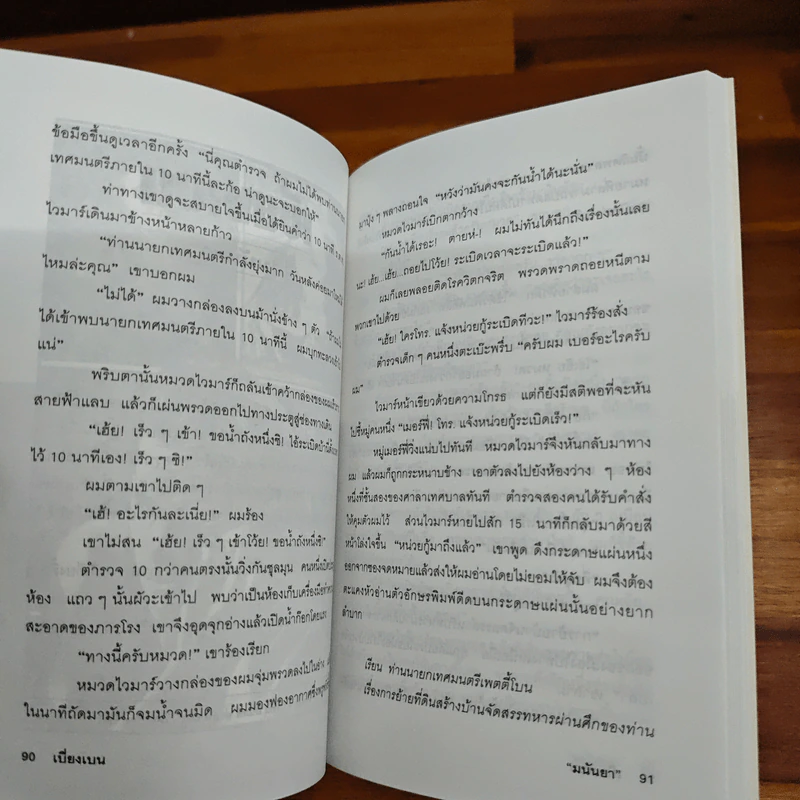 ข้อมือขึ้นดูเวลาอีกครั้ง “นี่คุณตำรวจ ถ้าผมไม่ได้พบท่านนายก
เทศมนตรีภายใน 10 นาทีนี้ละก้อ น่าดูนะจะบอกให้”
ท่าทางเขาดูจะสบายใจขึ้นเมื่อได้ยินคำว่า 10 นาที
ไวมาร์เดินมาข้างหน้าหลายก้าว
“ท่านนายกเทศมนตรีกำลังยุ่งมาก วันหลังค่อยมาใหม่ได้
ไหมล่ะคุณ” เขาบอกผม
“ไม่ได้” ผมวางกล่องลงบนม้านั่งข้าง ๆ ตัว
ได้เข้าพบนายกเทศมนตรีภายใน 10 นาทีนี้
แน่”
พริบตานั้นหมวดไวมาร์ก็ถลันเข้าคว้ากล่องของผม
สายฟ้าแลบ แล้วก็เผ่นพรวดออกไปทางประตูสู่ช่องทางเดิน
“เฮ้ย! เร็ว ๆ เข้า! ขอน้ำถังหนึ่งซิ! ไอ้ระเบิดบ้านี่ตั้งเวลา
ไว้ 10 นาทีเอง! เร็ว ๆ ซิ!”
ผมตามเขาไปติด ๆ
“เฮ้! อะไรกันละเนี่ย!” ผมร้อง
เขาไม่สน “เฮ้ย! เร็ว ๆ เข้าโว้ย! ขอน้ำถังหนึ่งซิ”
ตำรวจ 10 กว่าคนตรงนั้นวิ่งกันชุลมุน คนหนึ่งเปิด
ห้อง แถว ๆ นั้นผัวะเข้าไป พบว่าเป็นห้องเก็บเครื่องมือทำความ
สะอาดของภารโรง เขาจึงอุดจุกอ่างแล้วเปิดน้ำก๊อกโดยแรง
“ทางนี้ครับหมวด!” เขาร้องเรียก
หมวดไวมาร์วางกล่องของผมจุ่มพรวดลงไปในอ่าง
ในนาทีถัดมามันก็จมน้ำจนมิด ผมมองฟองอากาศซึ่งผุด
90 เบี่ยงเบน
มาปุ้ง ๆ พลางถอนใจ “หวังว่ามันคงจะกันน้ำได้นะนั่น”
หมวดไวมาร์เบิกตากว้าง
“กันน้ำได้เรอะ! ตายห่-! ผมไม่ทันได้นึกถึงเรื่องนั้นเลย
นะ! เฮ้ย...เฮ้ย...ถอยไปโว้ย! ระเบิดเวลาจะระเบิดแล้ว!”
ผมก็เลยพลอยติดโรควิตกจริต พรวดพราดถอยหนีตาม
พวกเขาไปด้วย
“เฮ้ย! ใครโทร. แจ้งหน่วยกู้ระเบิดทีวะ!” ไวมาร์ร้องสั่ง
ตำรวจเด็ก ๆ คนหนึ่งตะเบ๊ะพรึ่บ “ครับผม เบอร์อะไรครับ
ผม”
ไวมาร์หน้าเขียวด้วยความโกรธ แต่ก็ยังมีสติพอที่จะหัน
ไปชี้หมู่คนหนึ่ง “เมอร์ฟี่! โทร. แจ้งหน่วยกู้ระเบิดเร็ว!”
หมู่เมอร์ฟี่วิ่งแน่บไปทันที หมวดไวมาร์จึงหันกลับมาทาง
ผม แล้วผมก็ถูกกระหนาบข้าง เอาตัวลงไปยังห้องว่าง ๆ ห้อง
หนึ่งที่ชั้นสองของศาลาเทศบาลทันที ตำรวจสองคนได้รับคำสั่ง
ให้คุมตัวผมไว้ ส่วนไวมาร์หายไปสัก 15 นาทีก็กลับมาด้วยสี
หน้าโล่งใจขึ้น “หน่วยกู้มาถึงแล้ว” เขาพูด ดึงกระดาษแผ่นหนึ่ง
ออกจากซองจดหมายแล้วส่งให้ผมอ่านโดยไม่ยอมให้จับ ผมจึงต้อง
ตะแคงหัวอ่านตัวอักษรพิมพ์ดีดบนกระดาษแผ่นนั้นอย่างยาก
ลำบาก
เรียน ท่านนายกเทศมนตรีเพตตี้โบน
เรื่องการย้ายที่ดินสร้างบ้านจัดสรรทหารผ่านศึกของท่าน
“มนันยา” 91